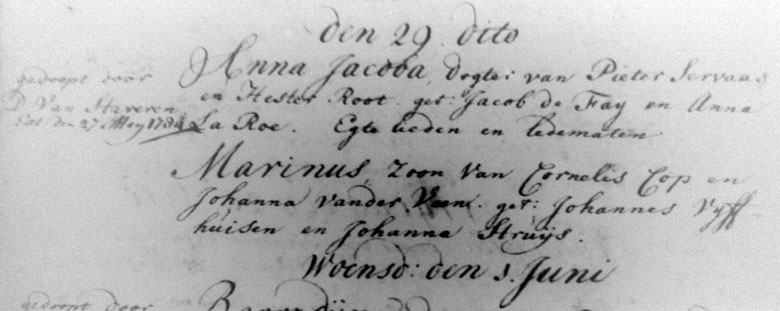 den 29 dito
gedoopt door
D. Van Staveren
Cat. den 27 Mey 1784
Anna Jacoba, Dogter van Pieter Servaas
en Hester Root. get: Jacob de Fay en Anna
La Roe. Egte lieden en Ledematen
Marinus, Zoon van Cornelis Cop en
Johanna vander Veen. get: Johannes Vyff-
huisen en Johanna Struijs.
Woensd: den 1. Juni
gedoopt door